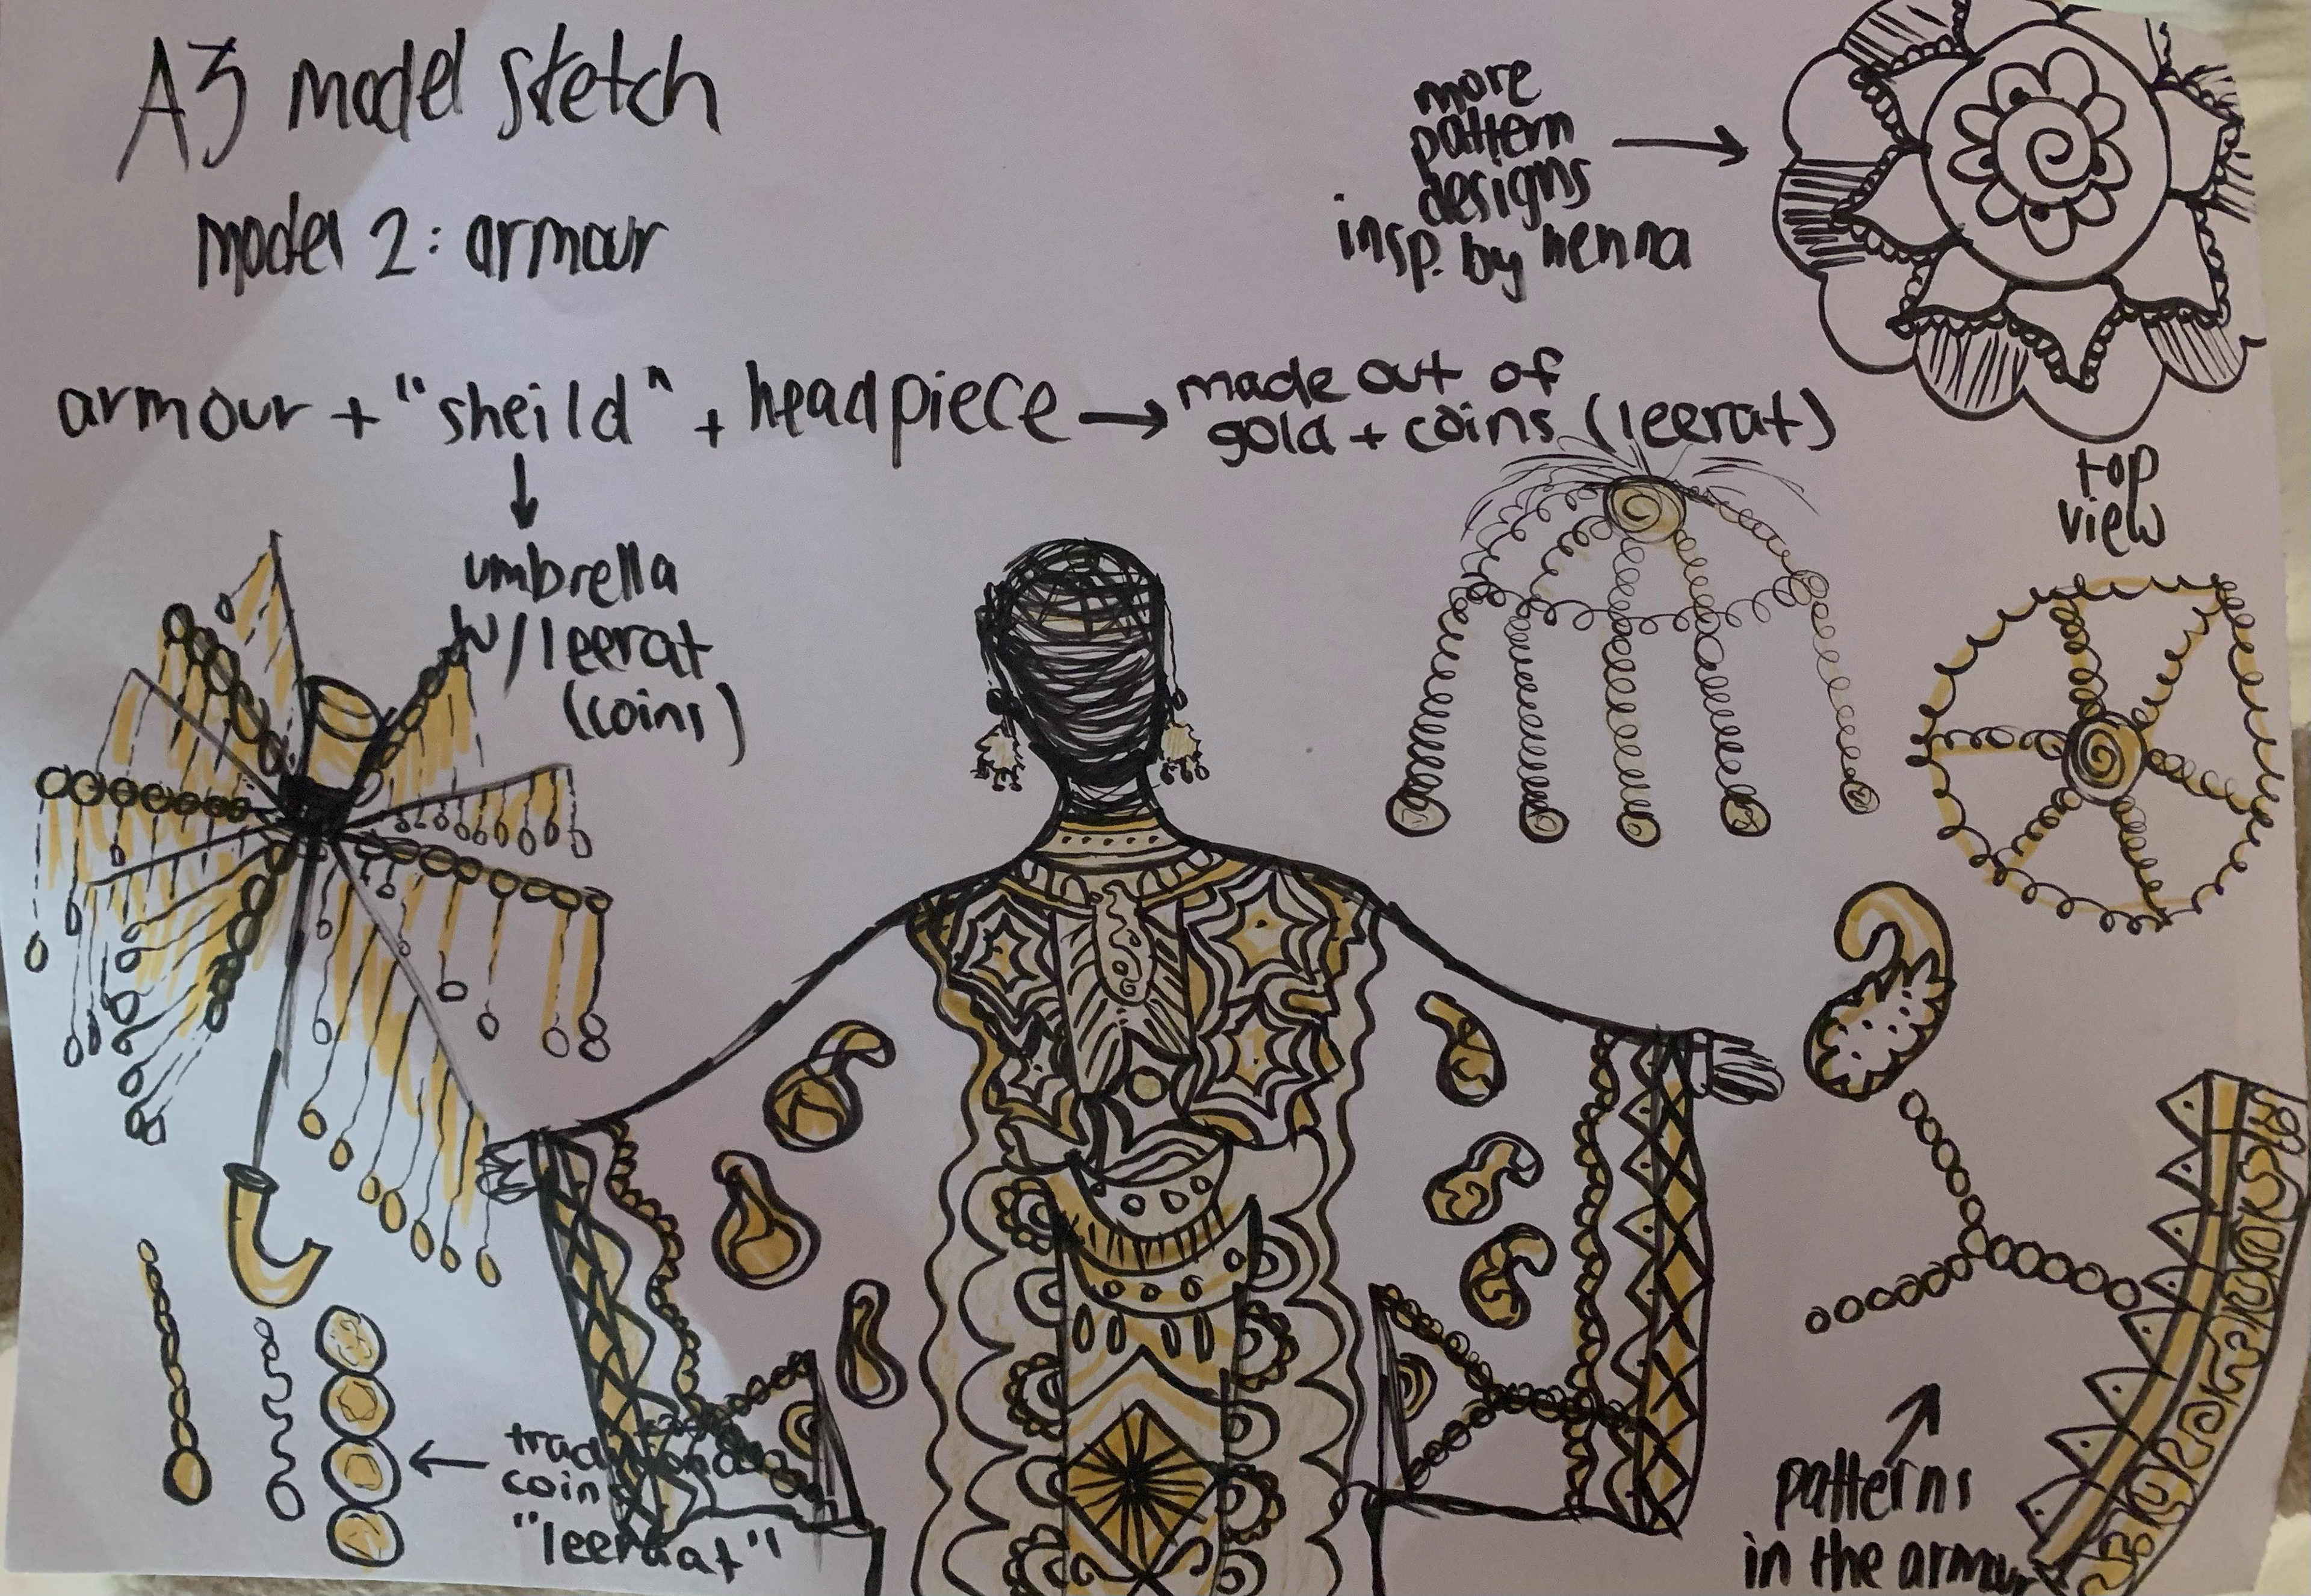 A3 model sketch
model 2: armour
more
pattern
designs
insp. by henna
armour + "sheild" + headpiece → made out of
gold + coins (leerat)
umbrella
w/leerat
(coins)
top
view
coin
patterns
in the armour